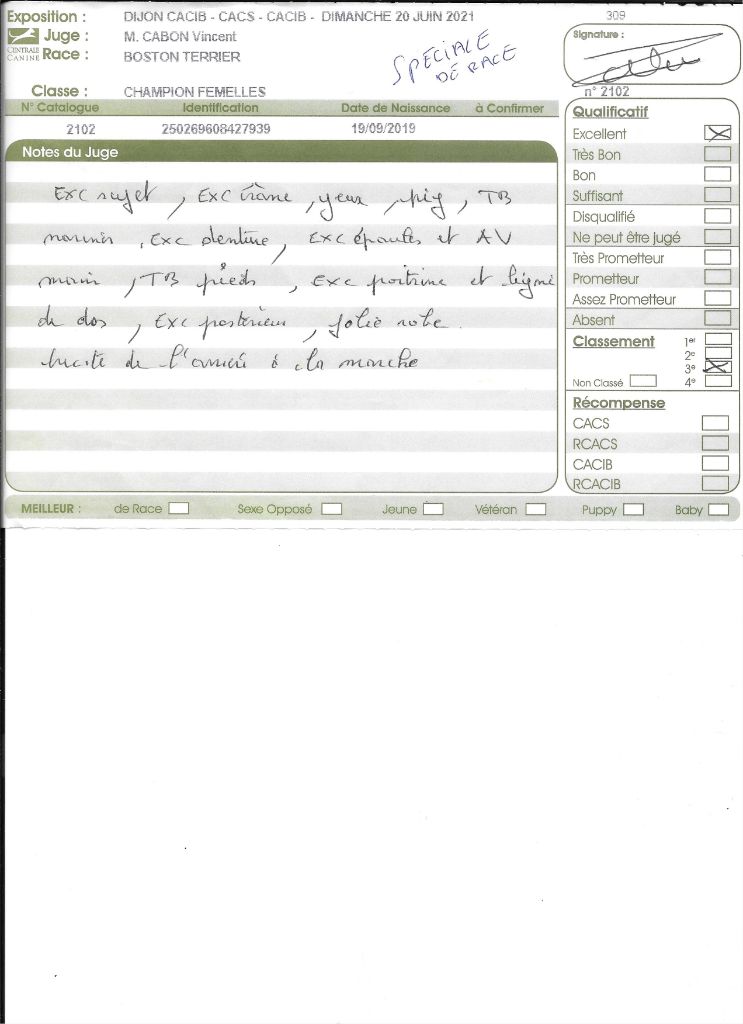 Exposition : DIJON CACIB - CACS - CACIB - DIMANCHE 20 JUIN 2021
309
CENTRALE CANINE
Juge : M. CABON Vincent
Race : BOSTON TERRIER
SPECIALE
DE RACE
Signature :
Classe : CHAMPION FEMELLES
n° 2102
N° Catalogue Identification Date de Naissance à Confirmer
2102 250269608427939 19/09/2019
Notes du Juge
Exc sujet, Exc crâne, yeux, pig, TB
, Exc denture, Exc épaules et AV
main, TB pieds, Exc poitrine et ligne
de dos, Exc postérieur, jolie robe.
de l'arrière à la marche
Qualificatif
Excellent
Très Bon
Bon
Suffisant
Disqualifié
Ne peut être jugé
Très Prometteur
Prometteur
Assez Prometteur
Absent
Classement 1er
2e
3e
Non Classé 4e
Récompense
CACS
RCACS
CACIB
RCACIB
MEILLEUR : de Race Sexe Opposé Jeune Vétéran Puppy Baby